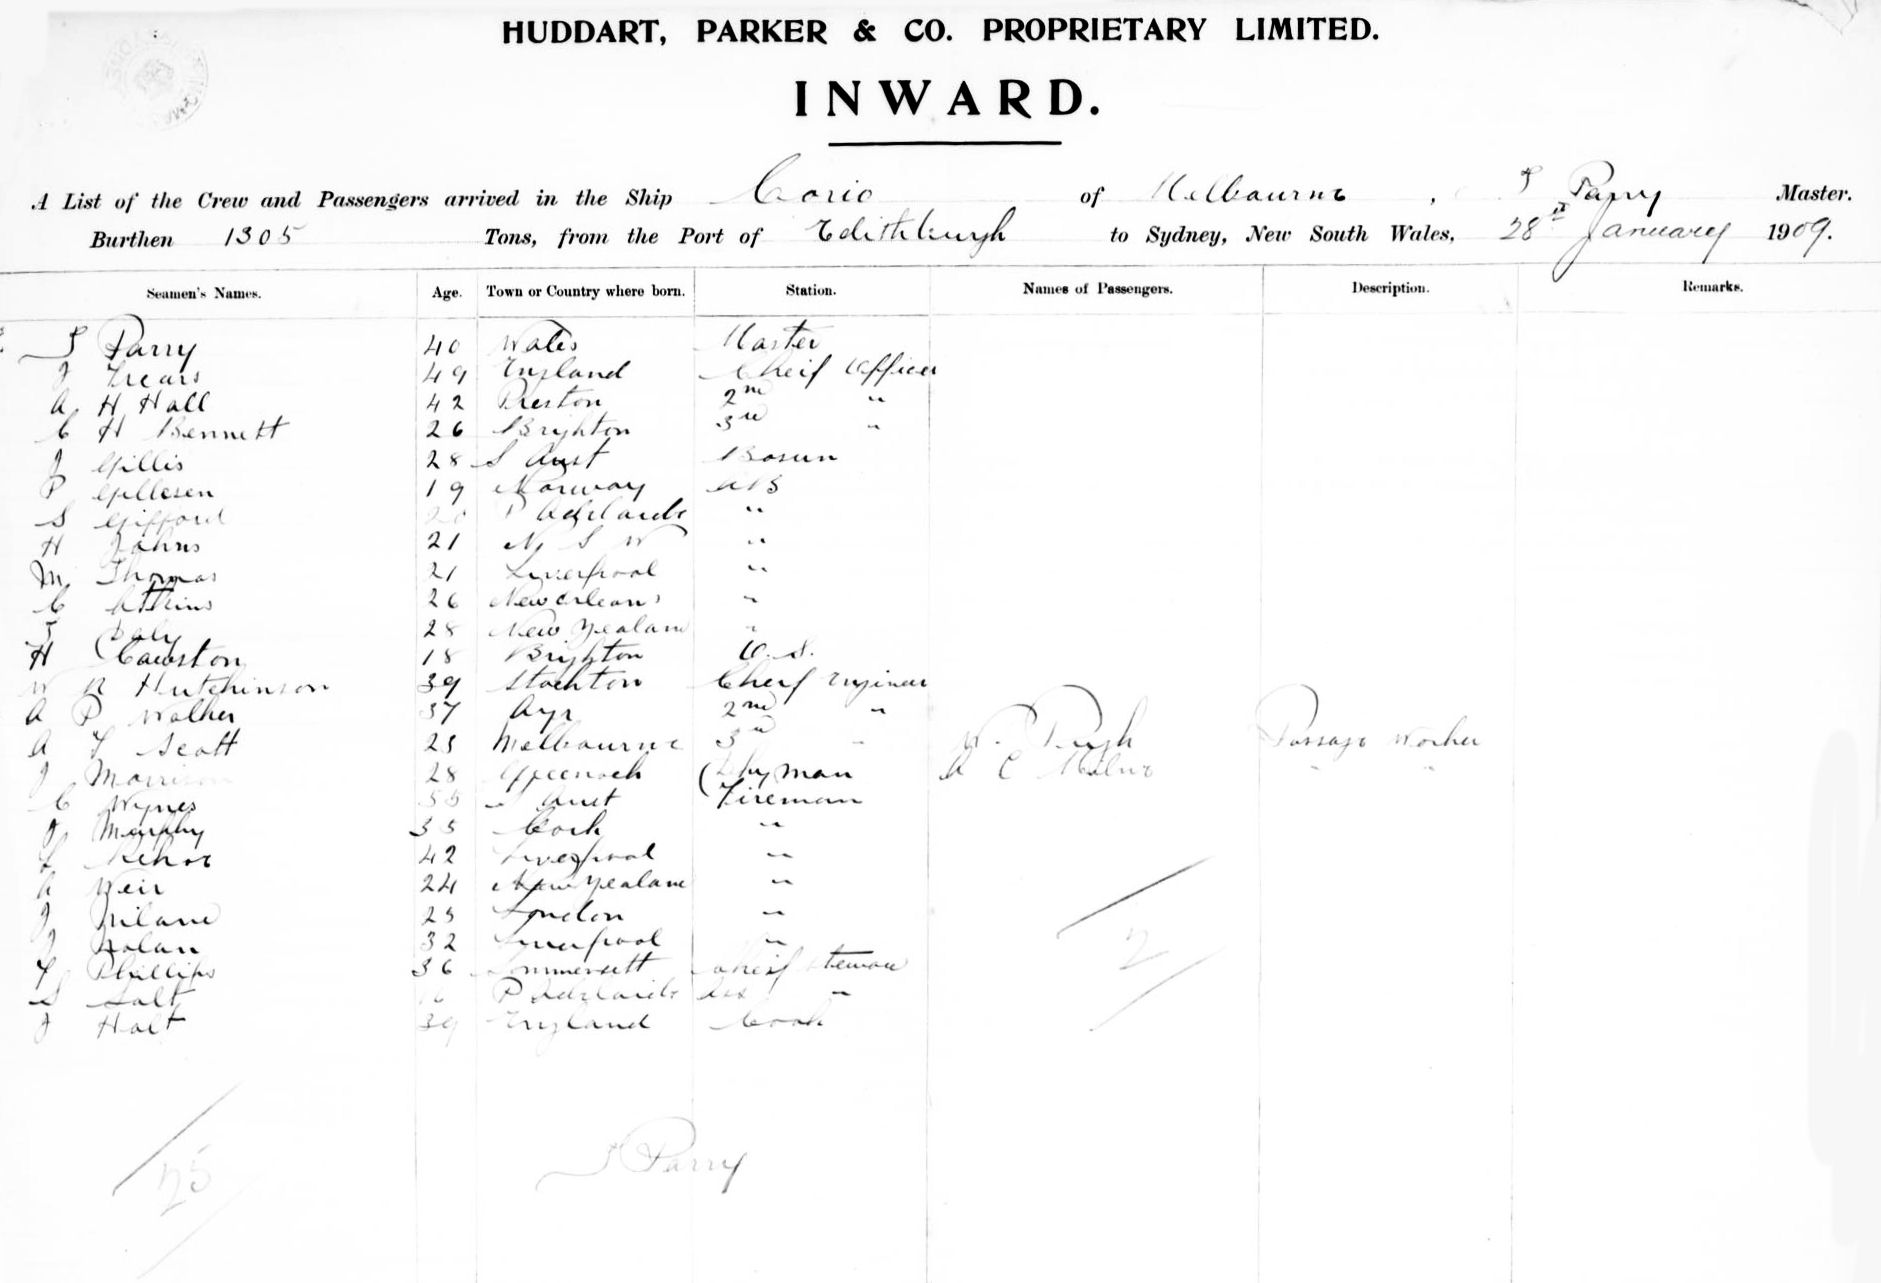 HUDDART, PARKER & CO. PROPRIETARY LIMITED.
INWARD.
A List of the Crew and Passengers arrived in the Ship Corio of Melbourne, T Parry Master.
Burthen 1305 Tons, from the Port of Edithburgh to Sydney, New South Wales, 28th January 1909.
Seamen's Names. Age. Town or Country where born. Station. Names of Passengers. Description. Remarks.
T Parry 40 Wales Master
J 49 England Cheif Officer
A H Hall 42 Preston 2nd "
C H Bennett 26 Brighton 3rd "
J Gillis 28 S Aust Bosun
P Gillesen 19 Norway AB
S Gifford 20 P Adelaide "
H Johns 21 N S W "
M Thomas 21 Liverpool "
C Atkins 26 New Orleans "
T Daly 28 New Zealand "
H Cawston 18 Brighton O.S.
W R Hutchinson 39 Stockton Cheif Engineer
A P Walker 37 Ayr 2nd "
A F Scott 25 Melbourne 3rd " W. Pugh Passage Worker
J Morrison 28 Greenock Dkyman A C Milne " "
C Wynes 55 S Aust Fireman
J Murphy 35 Cork "
L Kehoe 42 Liverpool "
A Weir 24 New Zealand "
J 25 London "
J Nolan 32 Liverpool "
F Phillips 36 Sommersett Cheif Steward
S Salt 16 P Adelaide Ass "
J Holt 39 England Cook
2
25
T Parry